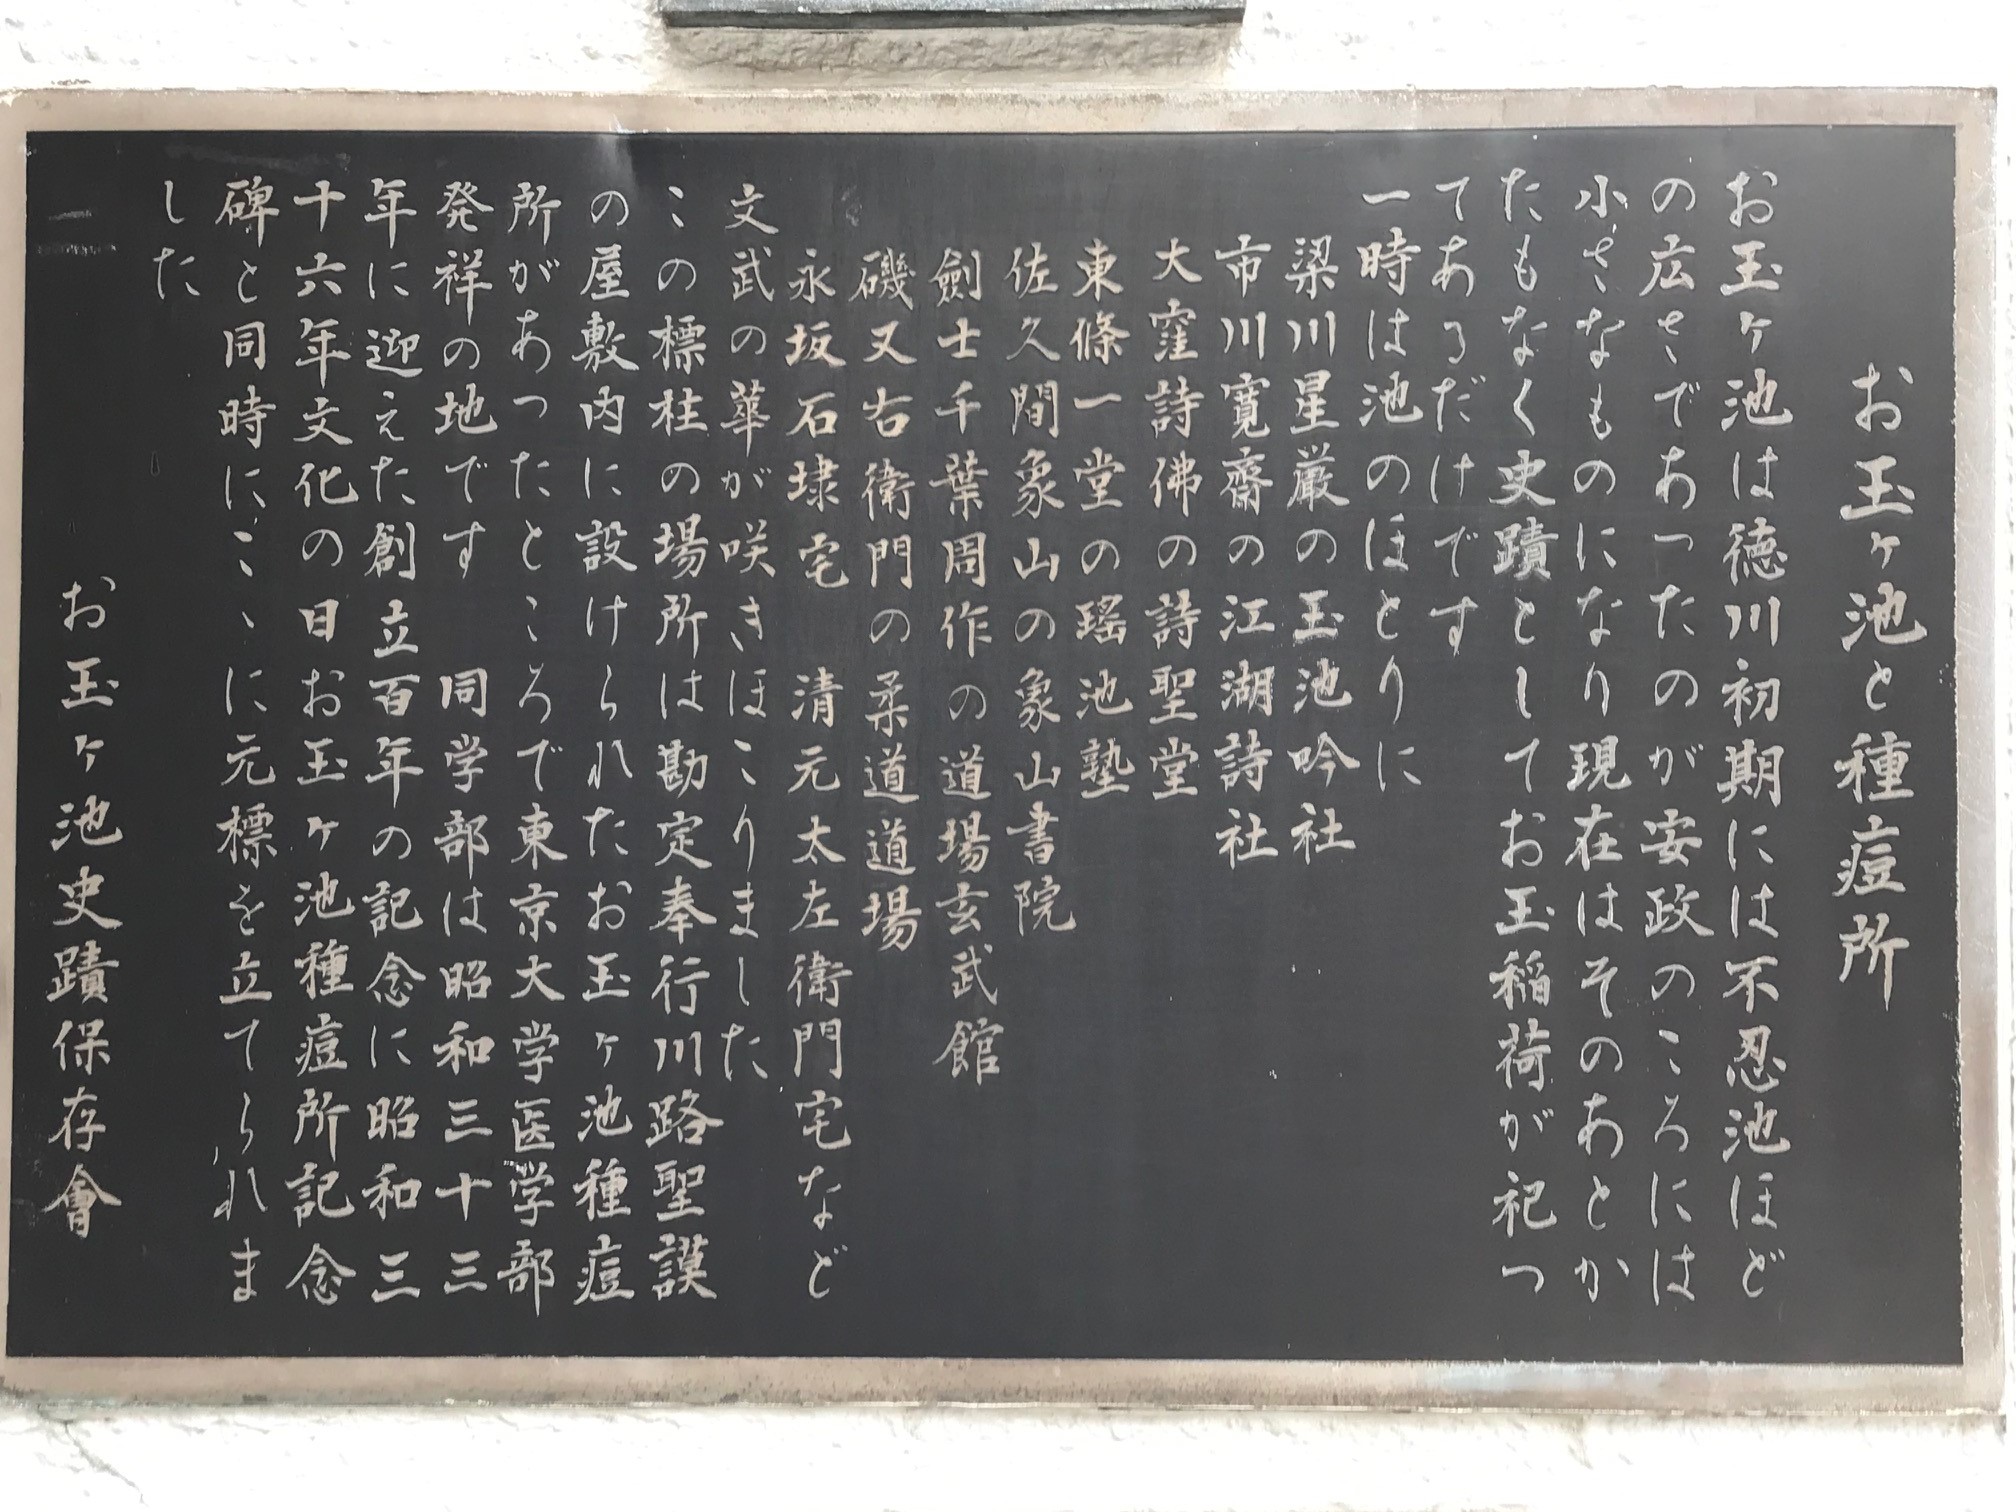 お玉ヶ池と種痘所
お玉ヶ池は徳川初期には不忍池ほど
の広さであったのが安政のころには
小さなものになり現在はそのあとか
たもなく史蹟としてお玉稲荷が祀っ
てあるだけです
一時は池のほとりに
梁川星巌の玉池吟社
市川寛齋の江湖詩社
大窪詩佛の詩聖堂
東條一堂の瑶池塾
佐久間象山の象山書院
劍士千葉周作の道場玄武館
磯又右衛門の柔道道場
永坂石埭宅 清元太左衛門宅など
文武の華が咲きほこりました
この標柱の場所は勘定奉行川路聖謨
の屋敷内に設けられたお玉ヶ池種痘
所があったところで東京大学医学部
発祥の地です 同学部は昭和三十三
年に迎えた創立百年の記念に昭和三
十六年文化の日お玉ヶ池種痘所記念
碑と同時にこゝに元標を立てられま
した
お玉ヶ池史蹟保存會